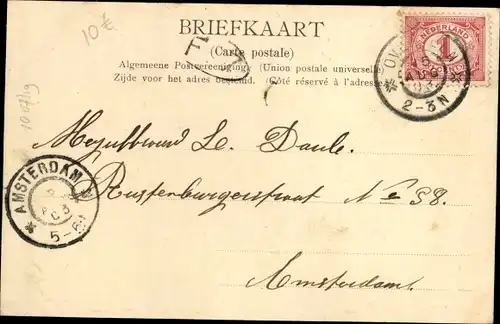 10 €
BRIEFKAART
(Carte postale)
Algemeene Postvereeniging (Union postale universelle)
Zijde voor het adres bestemd. (Côté réservé à l'adresse)
NEDERLAND
1
2-3N
Le. Daule.
Rustenburgerstraat No 58.
Amsterdam.
AMSTERDAM
5-6N